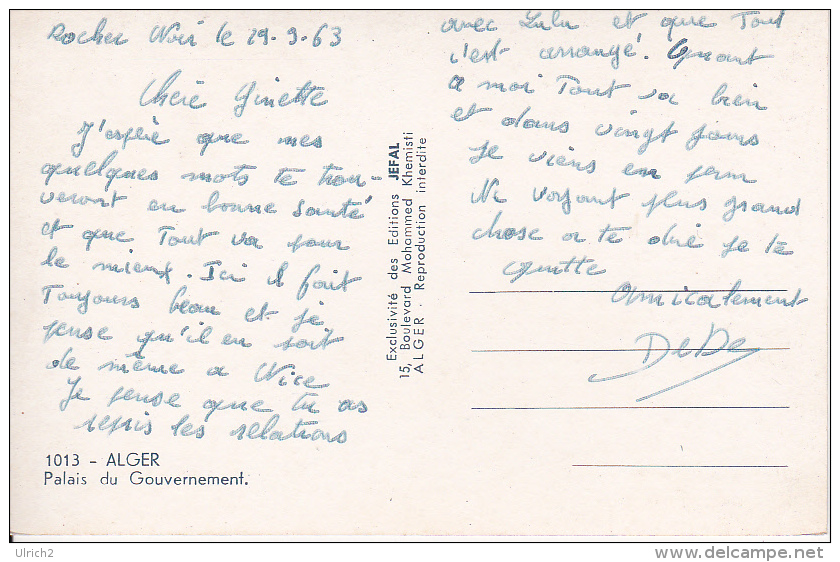 Rocher Noir le 29-9-63
Chère Ginette
J'espère que mes
quelques mots te trou-
veront en bonne santé
et que Tout va pour
le mieux. Ici il fait
Toujours beau et je
pense qu'il en soit
de même a Nice
Je pense que tu as
repis les relations
1013 - ALGER
Palais du Gouvernement.
Exclusivité des Editions JEFAL
15, Boulevard Mohammed Khemisti
ALGER · Reproduction interdite
avec Lulu et que Tout
s'est arrangé. Quant
a moi Tout va bien
et dans vingt jours
Je viens en perm
Ne voyant plus grand
chose a te dire je te
quitte
Amicalement
DeDe
Ulrich2
delcampe.net